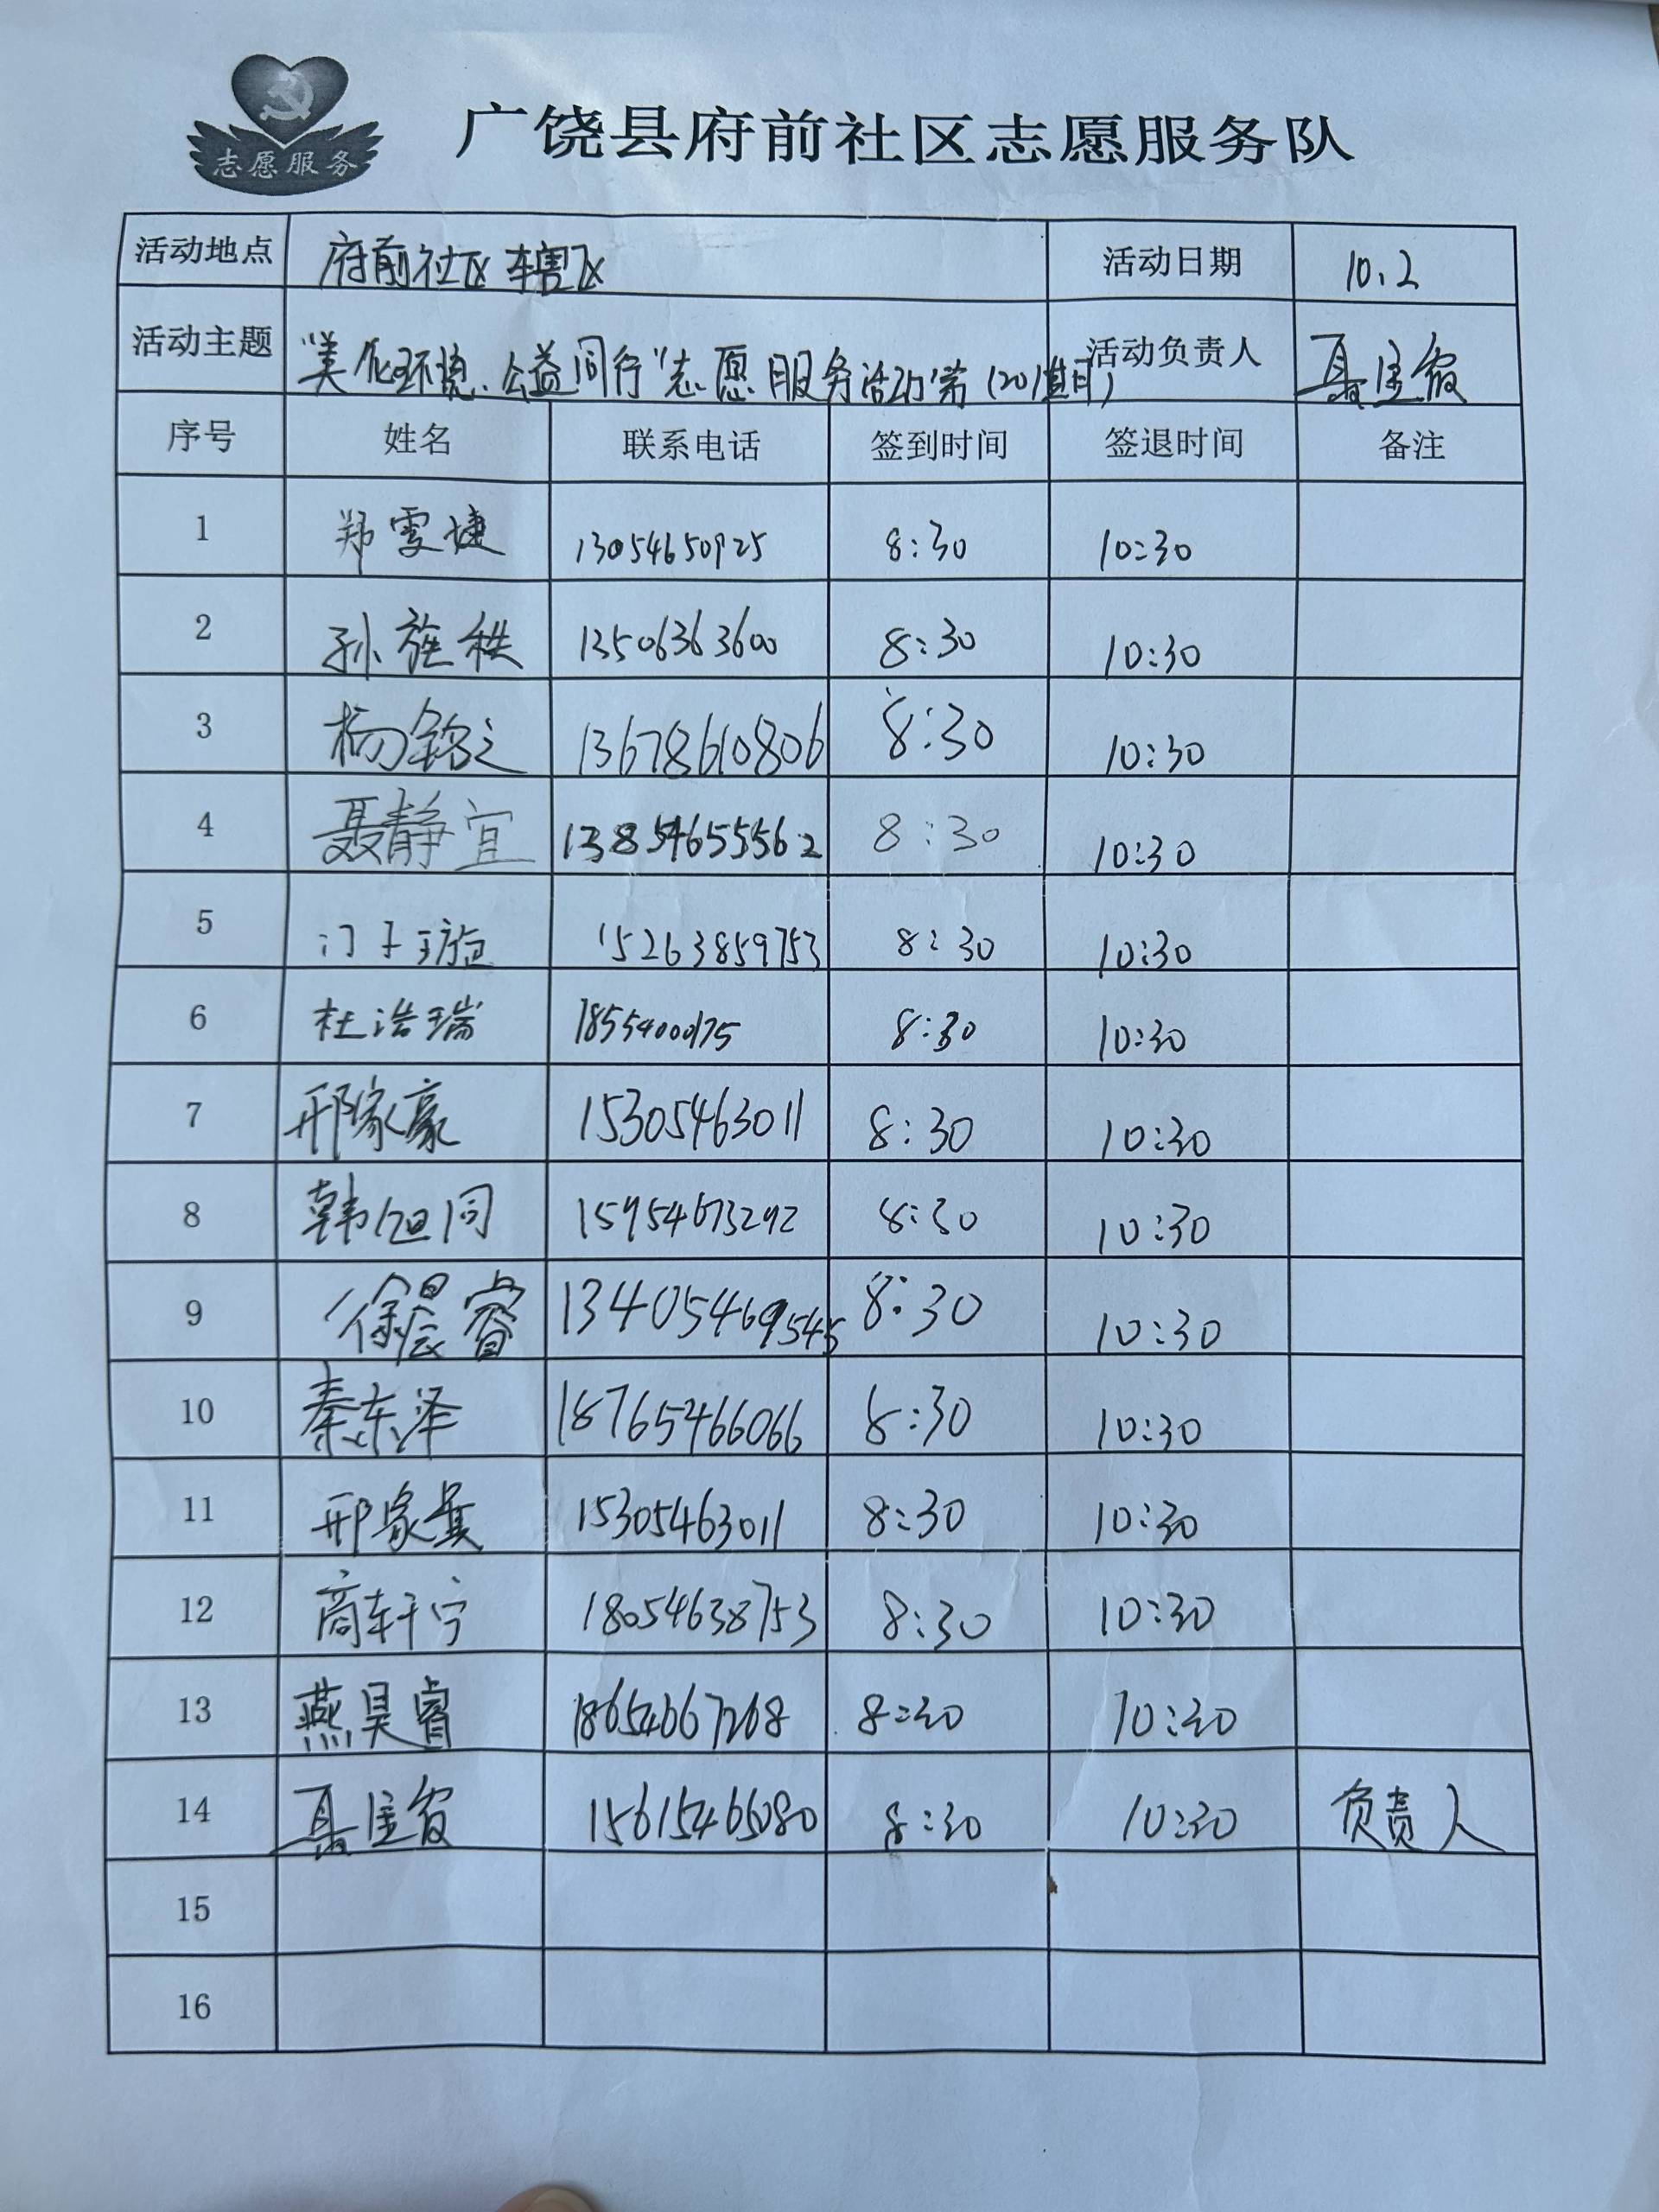 志愿服务
广饶县府前社区志愿服务队
活动地点 府前社区辖区 活动日期 10.2
活动主题 "美化环境、公益同行"志愿服务活动第(201)期 活动负责人 聂佳俊
序号 姓名 联系电话 签到时间 签退时间 备注
1 郑雯婕 13054650925 8:30 10:30
2 孙旌秩 13506363600 8:30 10:30
3 杨铭之 13678610806 8:30 10:30
4 聂静宜 13854655562 8:30 10:30
5 门子璇 15263859753 8:30 10:30
6 杜浩瑞 8:30 10:30
7 邢家豪 15305463011 8:30 10:30
8 韩旭同 15954673292 8:30 10:30
9 徐晨睿 13405469545 8:30 10:30
10 秦东泽 18765466066 8:30 10:30
11 邢家 15305463011 8:30 10:30
12 商轩宁 18054638753 8:30 10:30
13 燕昊睿 18654667268 8:30 10:30
14 15615465080 8:30 10:30 负责人
15
16